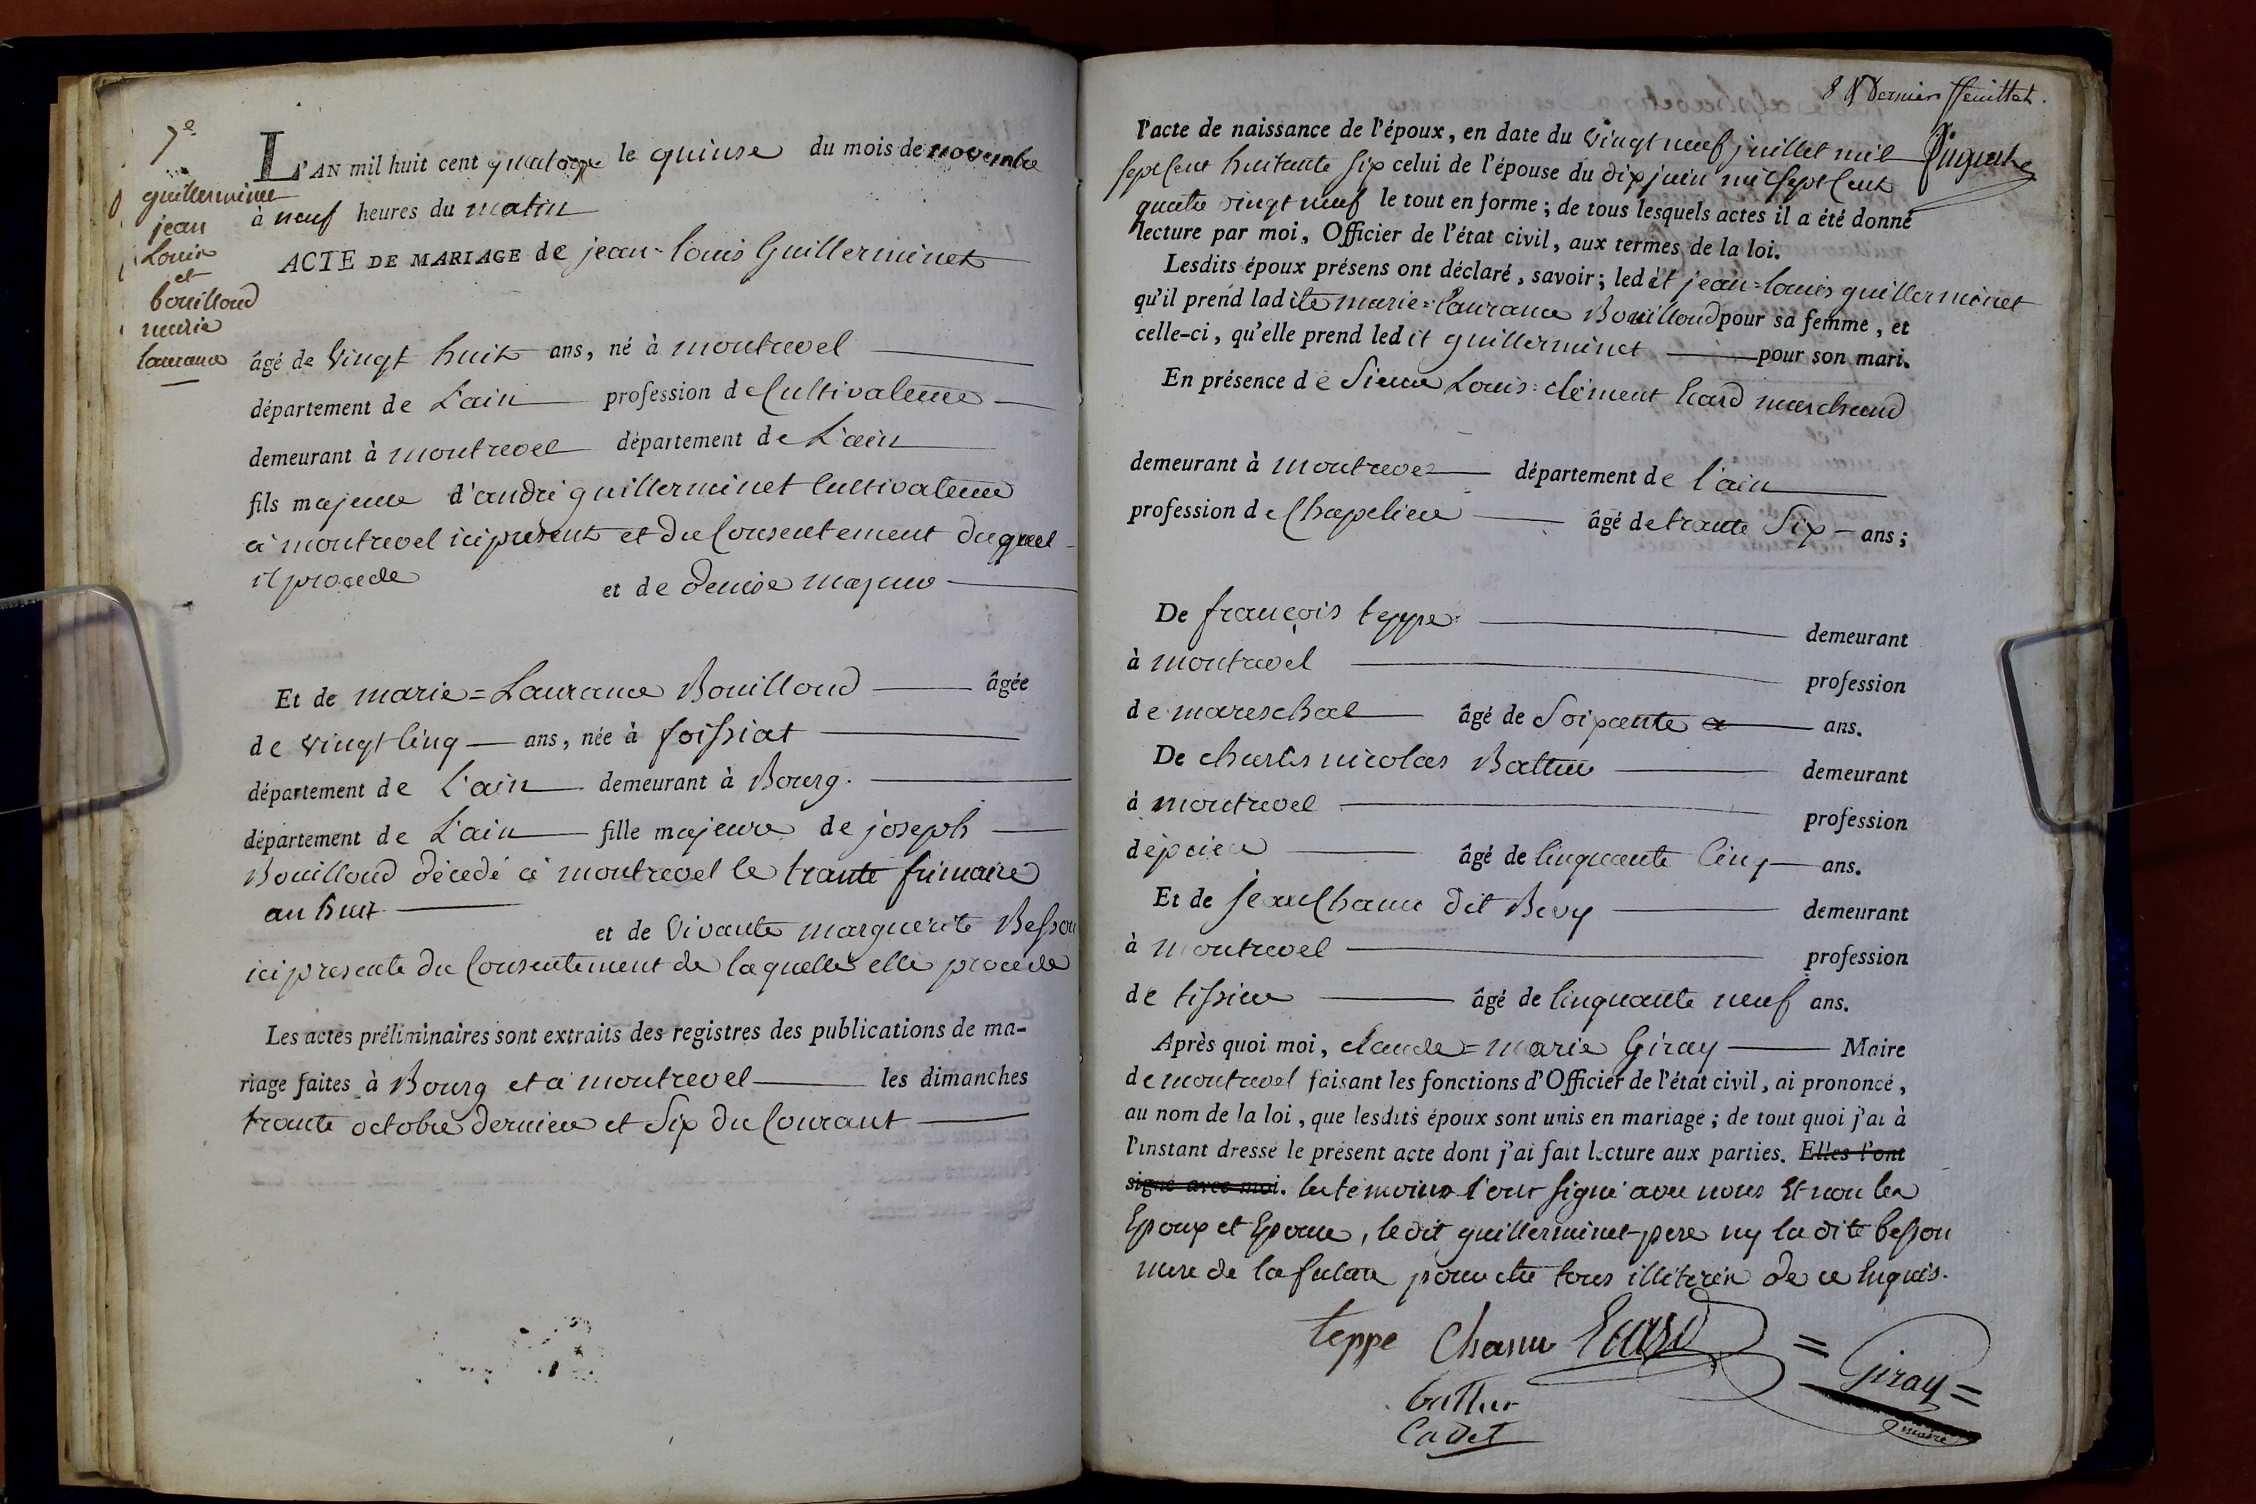 7e
guillerminet
jean
Louis
et
bouilloud
marie
laurance
L'AN mil huit cent quatorze le quinse du mois de novembre
à neuf heures du matin
ACTE DE MARIAGE de jean-louis Guillerminet
âgé de Vingt huit ans, né à montrevel
département de L'ain profession de Cultivateur
demeurant à montrevel département de L'ain
fils majeur d'andré guillerminet Cultivateur
à montrevel ici present et du Consentement duquel
il procede et de denise
Et de marie=Laurance Bouilloud âgée
de vingt Cinq ans, née à foissiat
département de L'ain demeurant à Bourg.
département de L'ain fille majeure de joseph
Bouilloud décedé à montrevel le trante frimaire
an huit
et de Vivante marguerite Besson
ici presente du Consentement de laquelle elle procede
Les actes préliminaires sont extraits des registres des publications de ma-
riage faites à Bourg et à montrevel les dimanches
trante octobre dernier et Six du Courant
8 & Dernier ffeuillet.
l'acte de naissance de l'époux, en date du Vingt neuf juillet mil
sept Cent huitante six celui de l'épouse du dix juin mil sept Cent
quatre vingt neuf le tout en forme; de tous lesquels actes il a été donné
lecture par moi, Officier de l'état civil, aux termes de la loi.
Lesdits époux présens ont déclaré, savoir; ledit jean=louis guillerminet
qu'il prend ladite marie=Laurance Bouilloud pour sa femme, et
celle-ci, qu'elle prend ledit guillerminet pour son mari.
En présence de Sieur Louis=Clément Ecard marchand
demeurant à montrevel département de l'ain
profession de Chapelier âgé de trante Six ans;
De françois teppe demeurant
à montrevel profession
de mareschal âgé de Soixante ans.
De charles nicolas Battur demeurant
à montrevel profession
d'epicier âgé de Cinquante Cinq ans.
Et de jean Chanu dit Bevy demeurant
à montrevel profession
de tissieur âgé de Cinquante neuf ans.
Après quoi moi, claude=marie Giray Maire
de montrevel faisant les fonctions d'Officier de l'état civil, ai prononcé,
au nom de la loi, que lesdits époux sont unis en mariage; de tout quoi j'ai à
l'instant dressé le présent acte dont j'ai fait lecture aux parties. Elles l'ont
signé avec moi. les témoins l'ont signé avec nous Et non les
Epoux et Epouse, le dit guillerminet pere ny la dite besson
mere de la future pour etre tous illiterés de ce Enquis.
teppe Chanu Ecard = Giray =
battur maire
Cadet